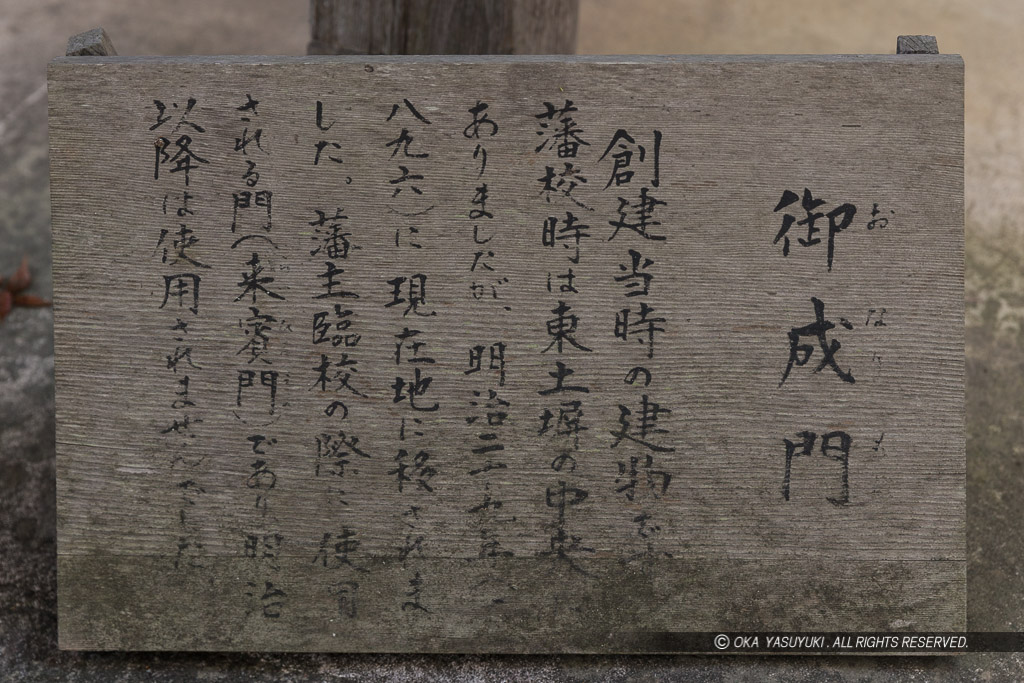 御成門
おなりも
創建当時の建物で
藩校時は東土塀の中央
ありましたが、明治二十九年(一
八九六)に現在地に移されま
した。藩主臨校の際に使用
される門(来賓門)であり明治
以降は使用されませんでした
© OKA YASUYUKI . ALL RIGHTS RESERVED.